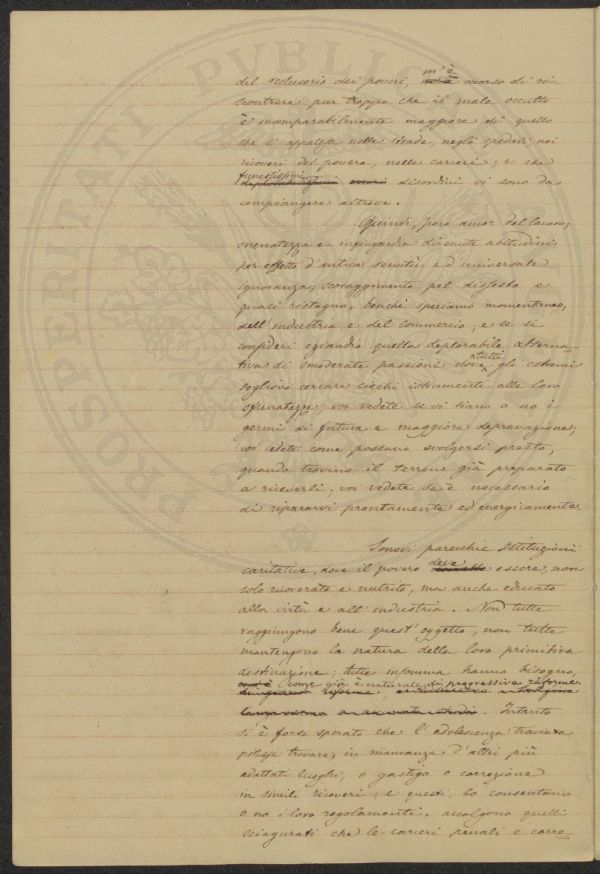 PROSPERITATI PVBLICAE
m'è
del reclusorio dei poveri occorso di ri-
scontrare pur troppo che il male occulto
è incomparabilmente maggiore di quello
che si appalga nelle strade, negli spedali, nei
ricoveri del povero, nelle carceri; e che
funestissimi
disordini vi sono da
compiangere altrove.
Quindi, poco amor del lavoro,
e infingardia divenute abitudini
per effetto d'antica servitù ed universale
ignoranza; scoraggimento pel dissesto e
quasi ristagno, benchè speriamo momentaneo,
dell'industria e del commercio; e se si
consideri eziandio quella deplorabile alterna-
tiva di smoderate passioni dove tutti gli estremi
sogliono cercare ciechi istrumenti alle loro
sfrenatezze, voi vedete se vi siano o no i
germi di futura e maggiore depravazione;
voi vedete come possano svolgersi presto,
quando trovino il terreno già preparato
a riceverli; voi vedete se è necessario
di ripararvi prontamente ed energicamente.
Sonovi parecchie Istituzioni
caritative, dove il povero deve essere, non
solo ricoverato e nutrito, ma anche educato
alla virtù e all'industria. Non tutte
raggiungono bene quest'oggetto, non tutte
mantengono la natura della loro primitiva
destinazione; tutte insomma hanno bisogno,
come già è naturale, di progressive riforme.
Intanto
si è forse sperato che l'adolescenza traviata
potesse trovare, in mancanza d'altri più
adattati luoghi, o gastigo o correzione
in simili ricoveri; e questi, lo consentano
o no i loro regolamenti, accolgono quelli
sciagurati che le carceri penali e corre